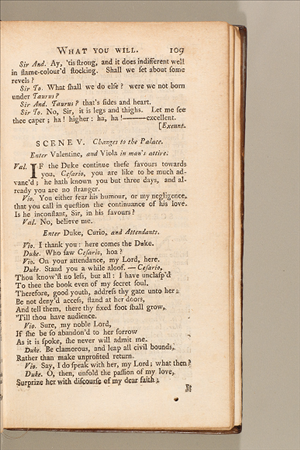 WHAT YOU WILL. 109
Sir And. Ay, 'tis ſtrong, and it does indifferent well
in flame-colour'd ſtocking. Shall we ſet about ſome
revels?
Sir To. What ſhall we do elſe? were we not born
under Taurus?
Sir And. Taurus? that's ſides and heart.
Sir To. No, Sir, it is legs and thighs. Let me ſee
thee caper; ha! higher: ha, ha!———excellent.
[Exeunt.
SCENE V. Changes to the Palace.
Enter Valentine, and Viola in man's attire.
Val. IF the Duke continue theſe favours towards
you, Ceſario, you are like to be much ad-
vanc'd; he hath known you but three days, and al-
ready you are no ſtranger.
Vio. You either fear his humour, or my negligence,
that you call in queſtion the continuance of his love.
Is he inconſtant, Sir, in his favours?
Val. No, believe me.
Enter Duke, Curio, and Attendants.
Vio. I thank you: here comes the Duke.
Duke. Who ſaw Ceſario, hoa?
Vio. On your attendance, my Lord, here.
Duke. Stand you a while aloof.—Ceſario,
Thou know'ſt no leſs, but all: I have unclaſp'd
To thee the book even of my ſecret ſoul.
Therefore, good youth, addreſs thy gate unto her;
Be not deny'd acceſs, ſtand at her doors,
And tell them, there thy fixed foot ſhall grow,
'Till thou have audience.
Vio. Sure, my noble Lord,
If ſhe be ſo abandon'd to her ſorrow
As it is ſpoke, ſhe never will admit me.
Duke. Be clamorous, and leap all civil bounds,
Rather than make unprofited return.
Vio. Say, I do ſpeak with her, my Lord; what then?
Duke. O, then, unfold the paſſion of my love,
Surprize her with diſcourſe of my dear faith;